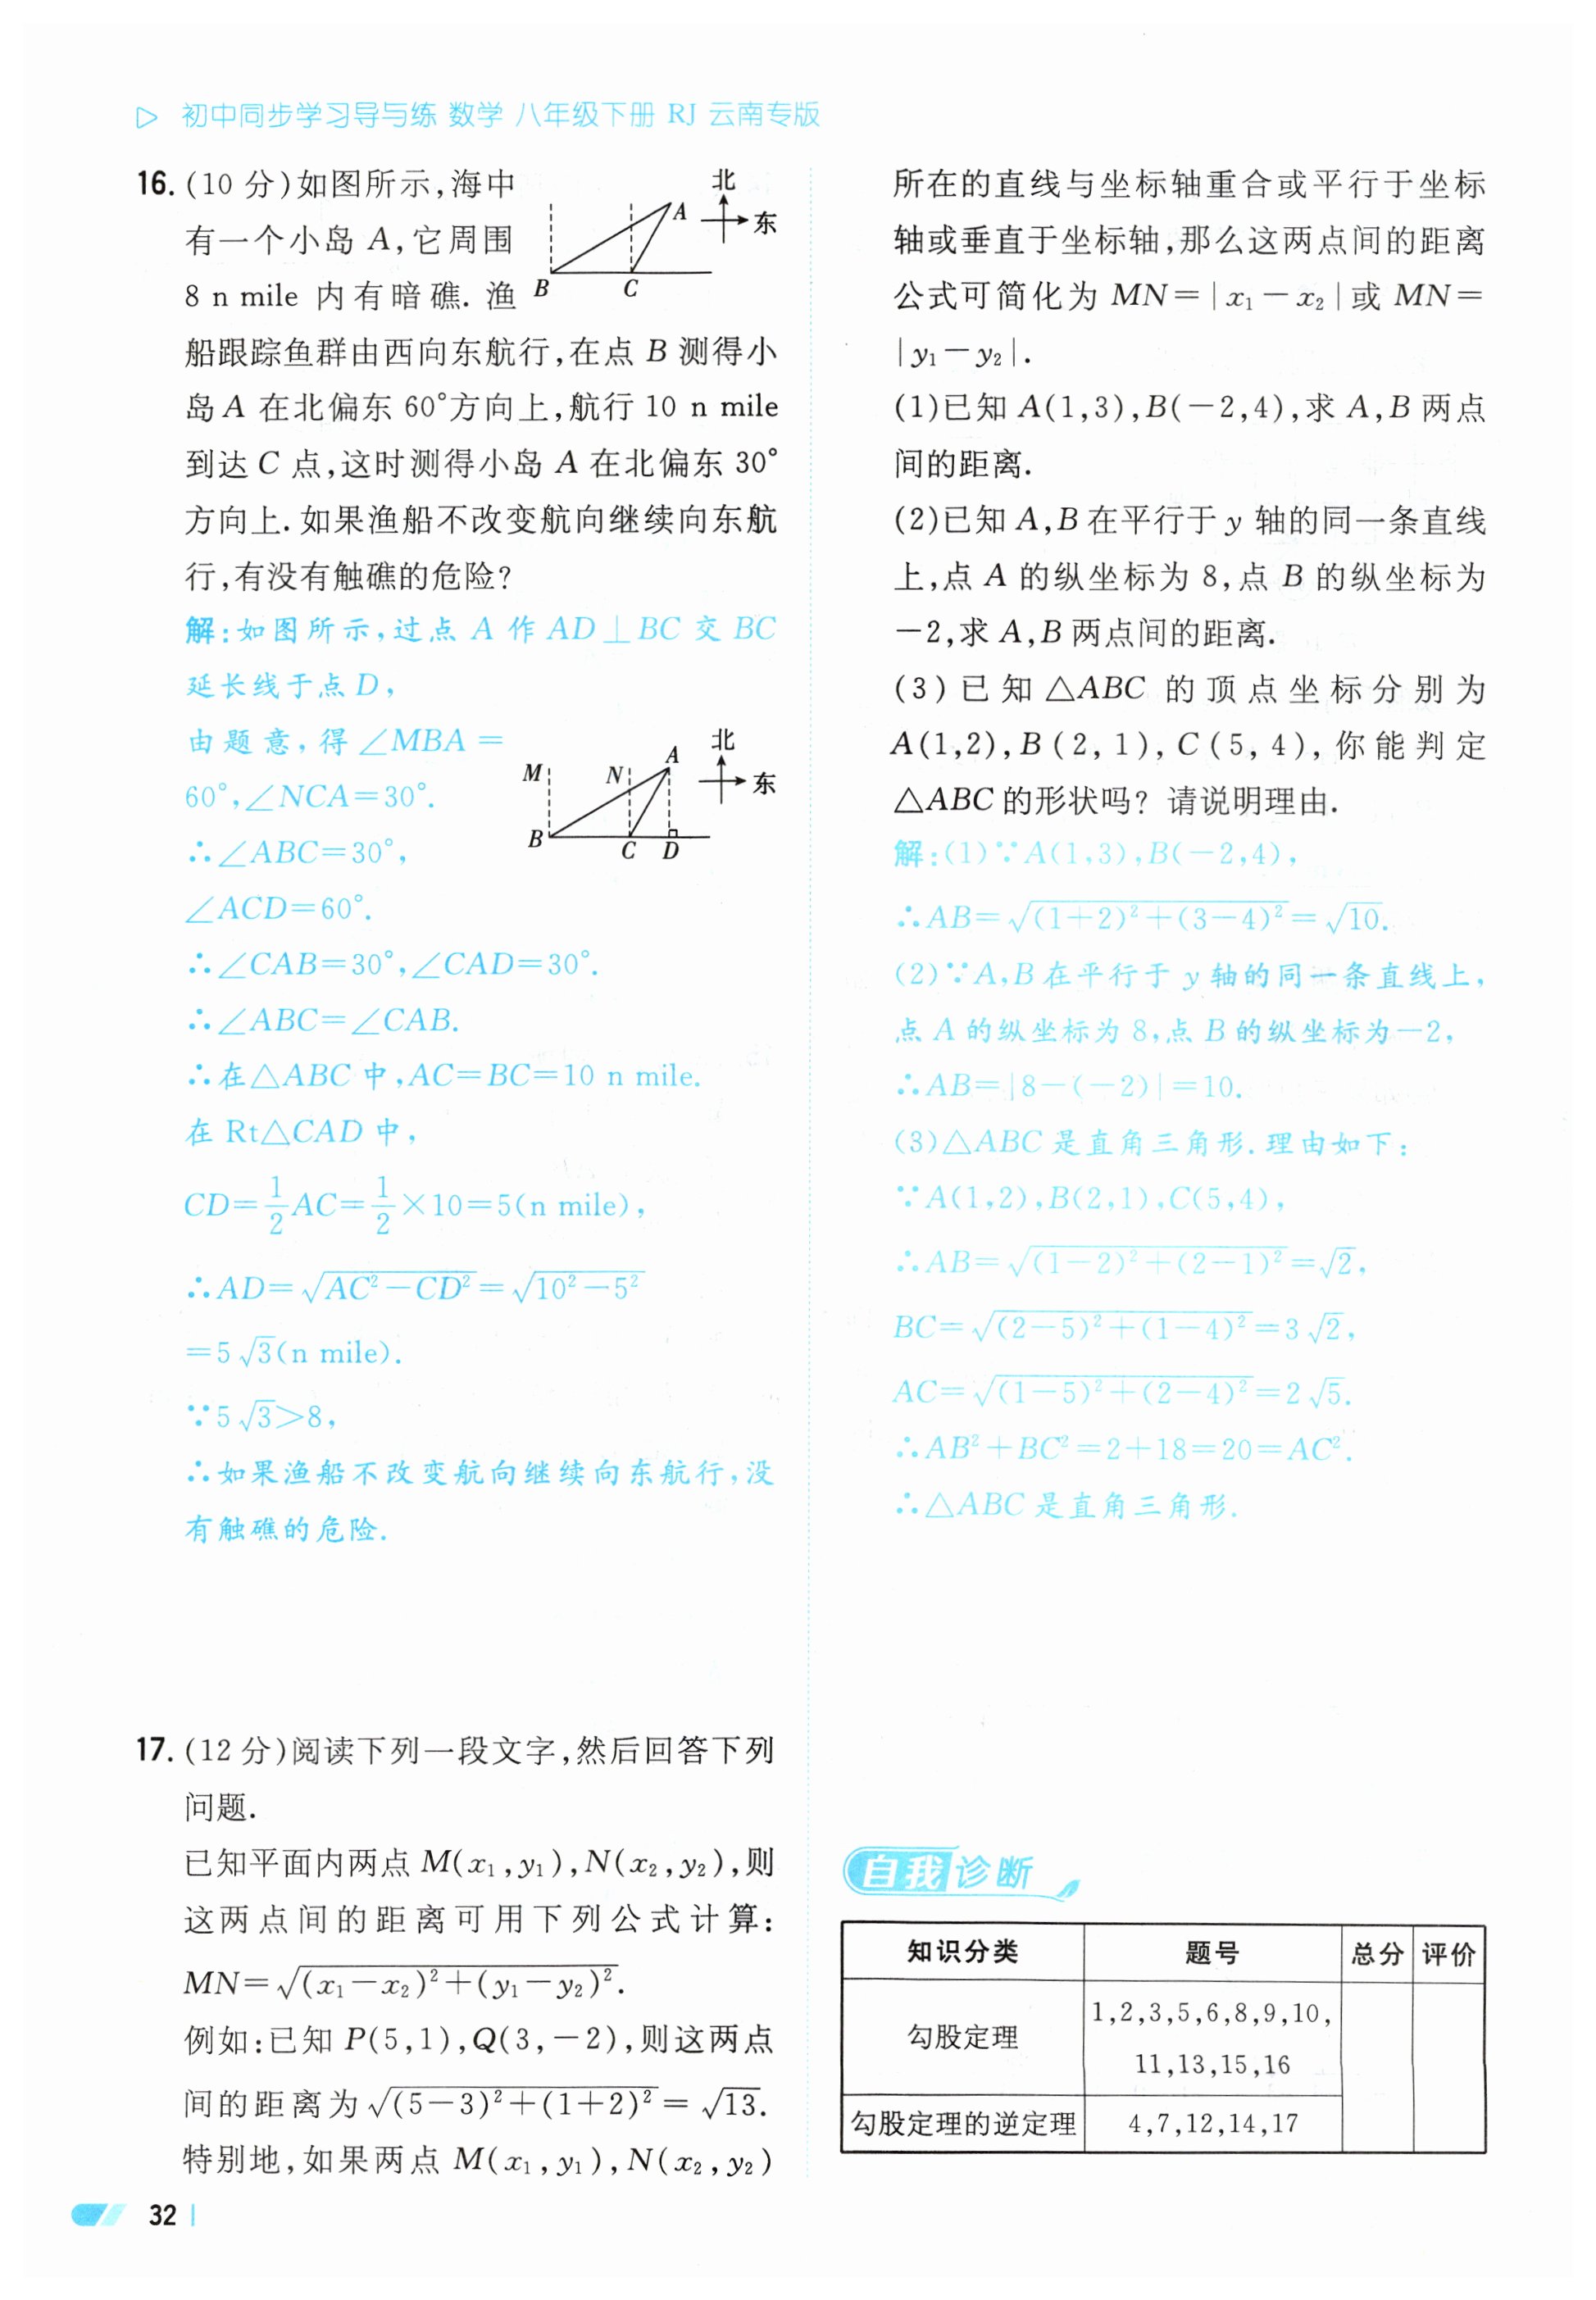 初中同步学习导与练 数学 八年级下册 RJ 云南专版
16. (10 分)如图所示,海中
有一个小岛 A,它周围
8 n mile 内有暗礁. 渔
船跟踪鱼群由西向东航行,在点 B 测得小
岛 A 在北偏东 60°方向上,航行 10 n mile
到达 C 点,这时测得小岛 A 在北偏东 30°
方向上. 如果渔船不改变航向继续向东航
行,有没有触礁的危险?
北
A
东
B
C
解:如图所示,过点 A 作 AD⊥BC 交 BC
延长线于点 D,
由题意,得∠MBA=
60°,∠NCA=30°.
∴∠ABC=30°,
∠ACD=60°.
∴∠CAB=30°,∠CAD=30°.
∴∠ABC=∠CAB.
∴在△ABC 中,AC=BC=10 n mile.
在 Rt△CAD 中,
CD=1/2AC=1/2×10=5(n mile),
∴AD=√(AC²-CD²)=√(10²-5²)
=5√3(n mile).
∵5√3>8,
∴如果渔船不改变航向继续向东航行,没
有触礁的危险.
北
M
N
A
东
B
C
D
17. (12 分)阅读下列一段文字,然后回答下列
问题.
已知平面内两点 M(x₁,y₁),N(x₂,y₂),则
这两点间的距离可用下列公式计算:
MN=√((x₁-x₂)²+(y₁-y₂)²).
例如:已知 P(5,1),Q(3,-2),则这两点
间的距离为√((5-3)²+(1+2)²)=√13.
特别地,如果两点 M(x₁,y₁),N(x₂,y₂)
所在的直线与坐标轴重合或平行于坐标
轴或垂直于坐标轴,那么这两点间的距离
公式可简化为 MN=|x₁-x₂|或 MN=
|y₁-y₂|.
(1)已知 A(1,3),B(-2,4),求 A,B 两点
间的距离.
(2)已知 A,B 在平行于 y 轴的同一条直线
上,点 A 的纵坐标为 8,点 B 的纵坐标为
-2,求 A,B 两点间的距离.
(3)已知△ABC 的顶点坐标分别为
A(1,2),B(2,1),C(5,4),你能判定
△ABC 的形状吗? 请说明理由.
解:(1)∵A(1,3),B(-2,4),
∴AB=√((1+2)²+(3-4)²)=√10.
(2)∵A,B 在平行于 y 轴的同一条直线上,
点 A 的纵坐标为 8,点 B 的纵坐标为-2,
∴AB=|8-(-2)|=10.
(3)△ABC 是直角三角形.理由如下:
∵A(1,2),B(2,1),C(5,4),
∴AB=√((1-2)²+(2-1)²)=√2,
BC=√((2-5)²+(1-4)²)=3√2,
AC=√((1-5)²+(2-4)²)=2√5.
∴AB²+BC²=2+18=20=AC².
∴△ABC 是直角三角形.
自我诊断
知识分类 题号 总分 评价
勾股定理 1,2,3,5,6,8,9,10,
11,13,15,16
勾股定理的逆定理 4,7,12,14,17
32